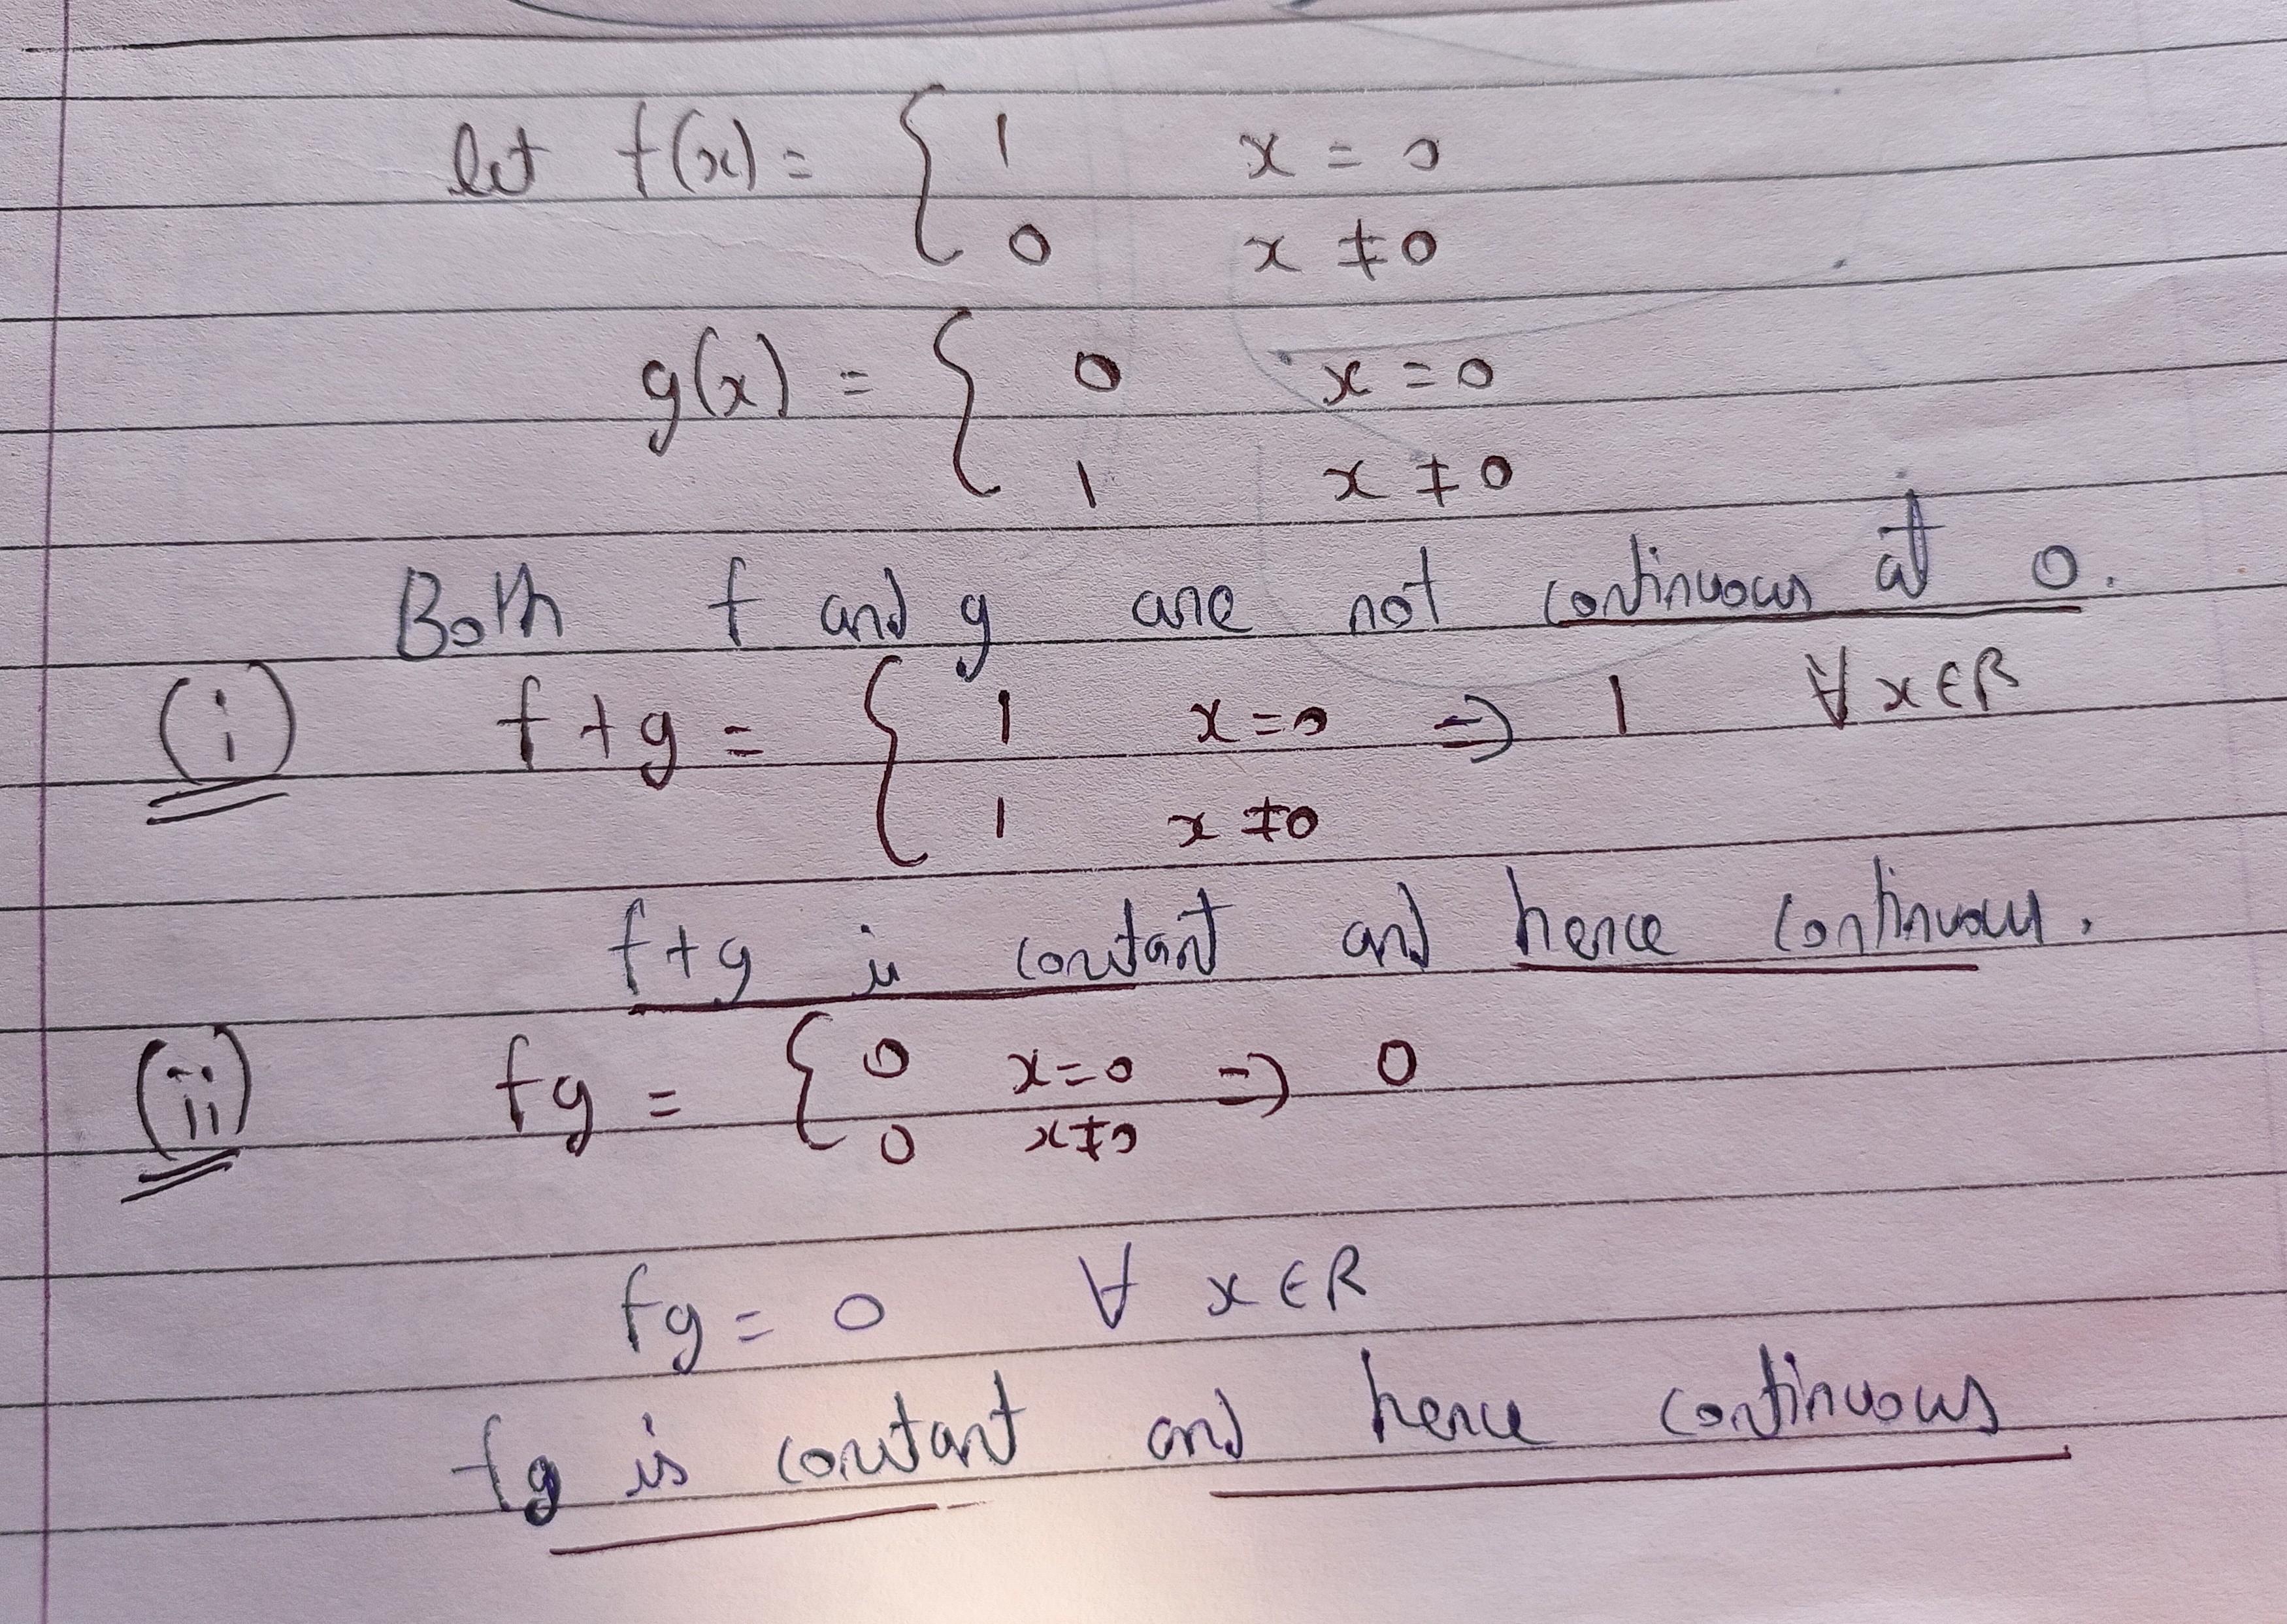 let f(x) = { 1 x = 0
0 x ≠ 0
g(x) = { 0 x = 0
1 x ≠ 0
Both f and g are not continuous at 0.
(i) f + g = { 1 x = 0 ⇒ 1 ∀ x ∈ R
1 x ≠ 0
f + g is constant and hence continuous.
(ii) fg = { 0 x = 0 ⇒ 0
0 x ≠ 0
fg = 0 ∀ x ∈ R
fg is constant and hence continuous